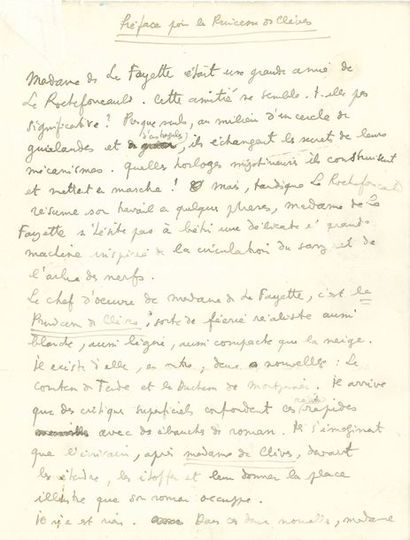 Préface pour la Princesse de Clèves
Madame de La Fayette était une grande amie de
La Rochefoucauld. Cette amitié ne semble-t-elle pas
significative? Presque seuls, au milieu d'un cercle de
guirlandes et d'astragales, ils échangent les secrets de leurs
mécanismes. Quelles horloges ils construisent
et mettent en marche! Mais, tandis que La Rochefoucauld
résume son travail en quelques phrases, madame de La
Fayette n'hésite pas à bâtir une délicate et grande
machine inspirée de la circulation du sang et de
l'arbre de nerfs.
Le chef d'œuvre de madame de La Fayette, c'est la
Princesse de Clèves, sorte de féerie réaliste aussi
blonde, aussi légère, aussi compacte que la neige.
Il existe d'elle, en outre, deux nouvelles: La
comtesse de Tende et la Duchesse de Montpensier. Il arrive
que des critiques superficiels confondent ces rapides
avec des ébauches de roman. Ils s'imaginent
que l'écrivain, après madame de Clèves, devait
les étendre, les étoffer et leur donner la place
illustre que son roman occupe.
Il n'en est rien. Dans ces deux nouvelles, madame